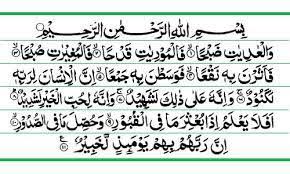 بِسْمِ اللهِ الرَّحْمٰنِ الرَّحِيْمِ
وَالْعٰدِيٰتِ ضَبْحًا ۙ﴿۱﴾ فَالْمُوْرِيٰتِ قَدْحًا ۙ﴿۲﴾ فَالْمُغِيْرٰتِ صُبْحًا ۙ﴿۳﴾
فَاَثَرْنَ بِهٖ نَقْعًا ۙ﴿۴﴾ فَوَسَطْنَ بِهٖ جَمْعًا ۙ﴿۵﴾ اِنَّ الْاِنْسَانَ لِرَبِّهٖ
لَكَنُوْدٌ ۚ﴿۶﴾ وَاِنَّهٗ عَلٰى ذٰلِكَ لَشَهِيْدٌ ۚ﴿۷﴾ وَاِنَّهٗ لِحُبِّ الْخَيْرِ لَشَدِيْدٌ ؕ﴿۸﴾
اَفَلَا يَعْلَمُ اِذَا بُعْثِرَ مَا فِى الْقُبُوْرِ ۙ﴿۹﴾ وَحُصِّلَ مَا فِى الصُّدُوْرِ ۙ﴿۱۰﴾
اِنَّ رَبَّهُمْ بِهِمْ يَوْمَئِذٍ لَّخَبِيْرٌ ﴿۱۱﴾